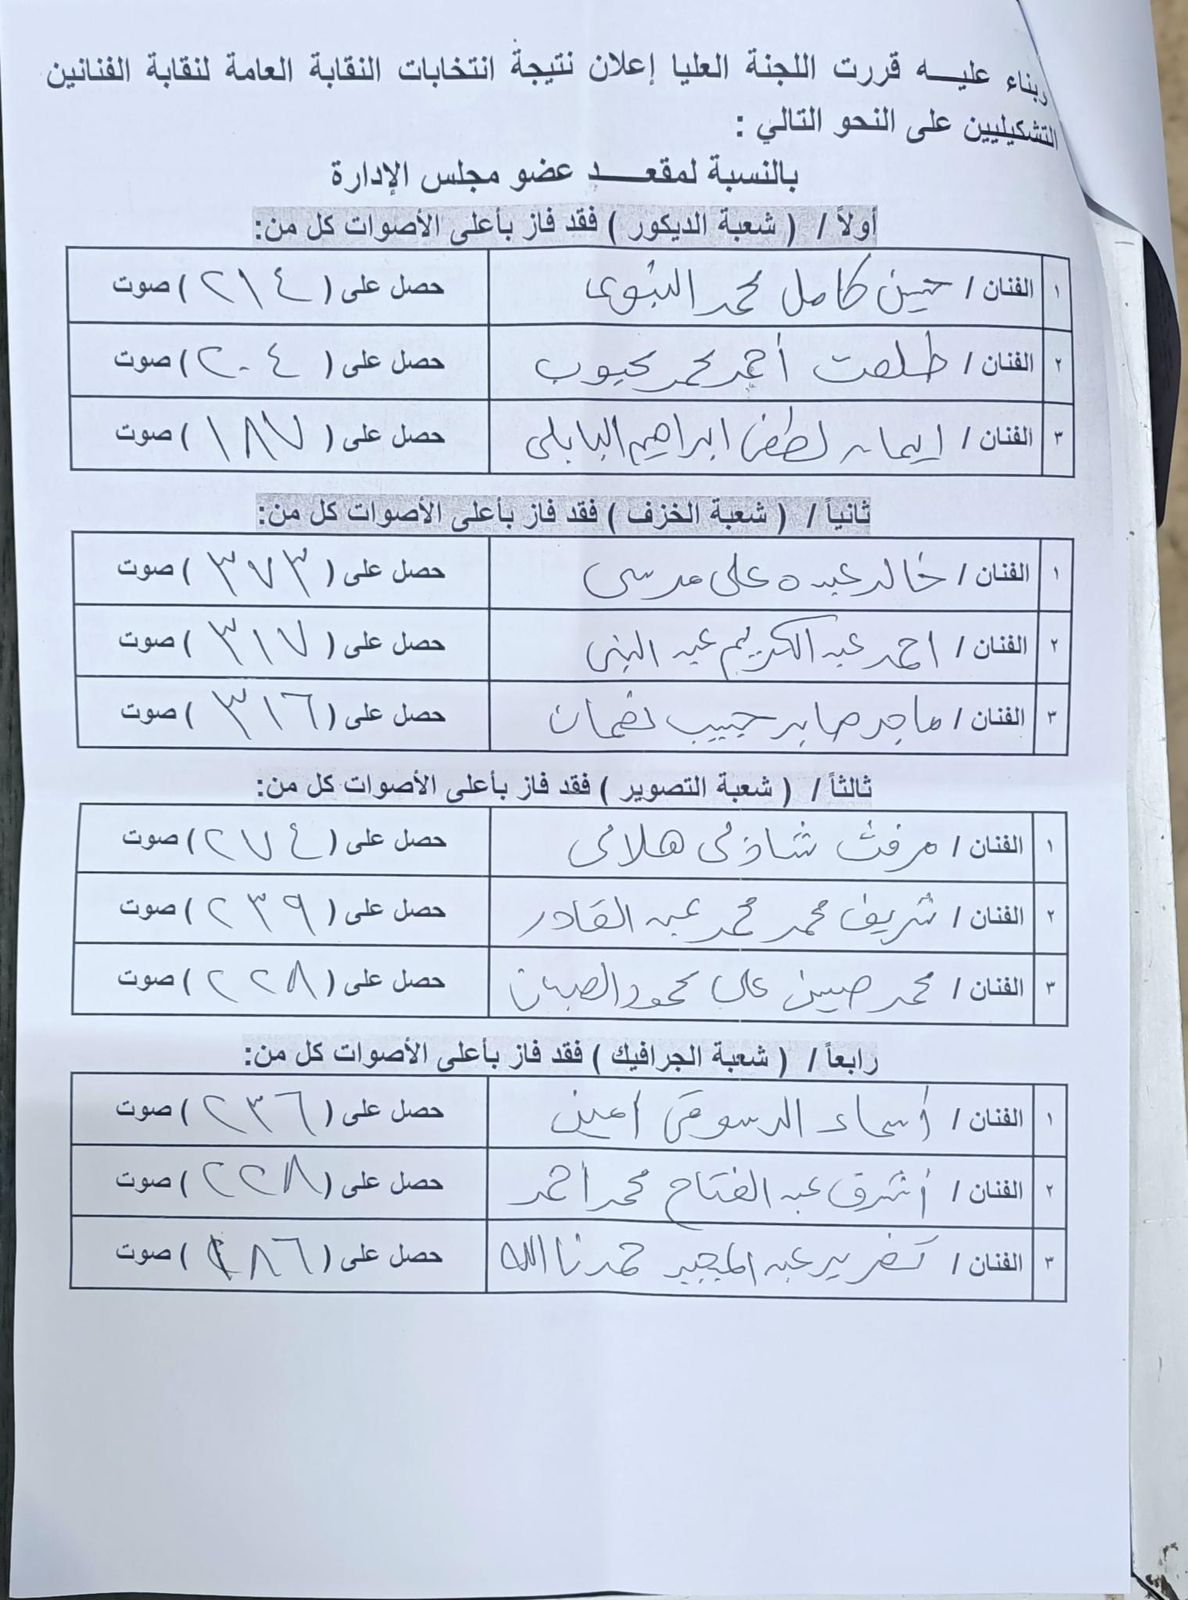 وبناء عليه قررت اللجنة العليا إعلان نتيجة انتخابات النقابة العامة لنقابة الفنانين
التشكيليين على النحو التالي :
بالنسبة لمقعد عضو مجلس الإدارة
أولاً / ( شعبة الديكور ) فقد فاز بأعلى الأصوات كل من:
١ الفنان / حسين كامل محمد النبوى حصل على ( ٢١٤ ) صوت
٢ الفنان / طلعت أحمد محمد محبوب حصل على ( ٢٠٤ ) صوت
٣ الفنان / ايمان لطفى ابراهيم البابلى حصل على ( ١٨٧ ) صوت
ثانياً / ( شعبة الخزف ) فقد فاز بأعلى الأصوات كل من:
١ الفنان / خالد عبده على مرسى حصل على ( ٣٧٣ ) صوت
٢ الفنان / احمد عبد الكريم عبد النبى حصل على ( ٣١٧ ) صوت
٣ الفنان / ماجد صابر حبيب حصل على ( ٣١٦ ) صوت
ثالثاً / ( شعبة التصوير ) فقد فاز بأعلى الأصوات كل من:
١ الفنان / مرفت شاذلى هلالى حصل على ( ٢٧٤ ) صوت
٢ الفنان / شريف محمد محمد عبد القادر حصل على ( ٢٣٩ ) صوت
٣ الفنان / محمد حسين على محمود حصل على ( ٢٢٨ ) صوت
رابعاً / ( شعبة الجرافيك ) فقد فاز بأعلى الأصوات كل من:
١ الفنان / أسماء الدسوقى امين حصل على ( ٢٣٦ ) صوت
٢ الفنان / أشرف عبد الفتاح محمد احمد حصل على ( ٢٢٨ ) صوت
٣ الفنان / عبد المجيد حمدنا الله حصل على ( ١٨٦ ) صوت